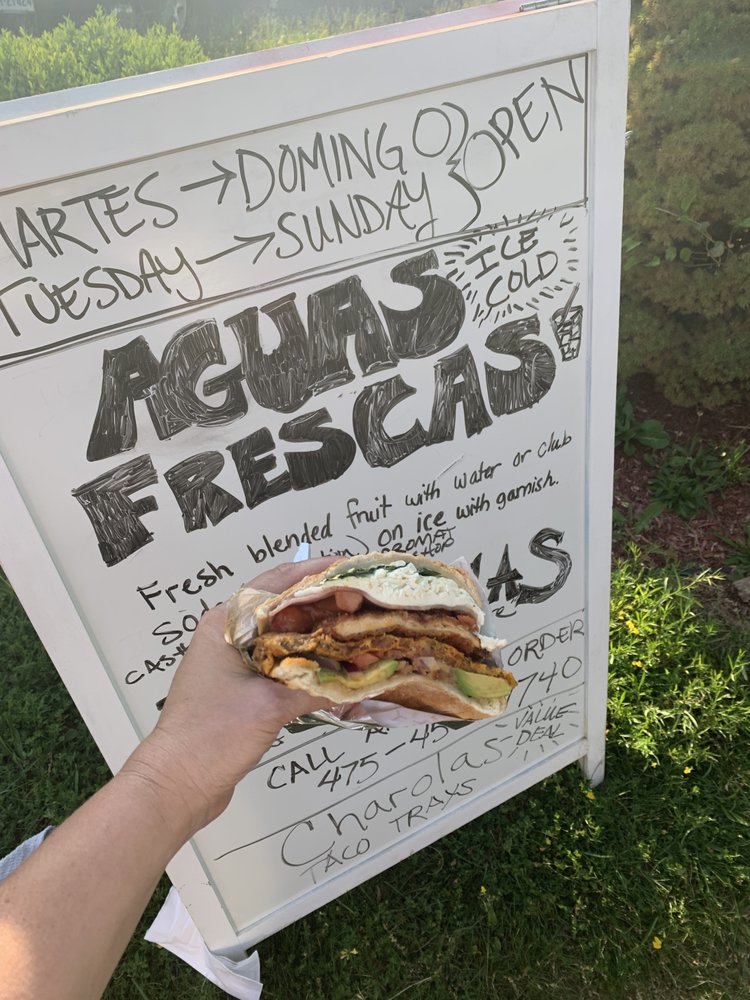 MARTES → DOMINGO
TUESDAY → SUNDAY
OPEN
ICE
COLD
AGUAS
FRESCAS
Fresh blended fruit with water or club
Soda on ice with garnish.
AS
ORDER
CALL
475-45 740
Charolas VALUE
DEAL
TACO TRAYS